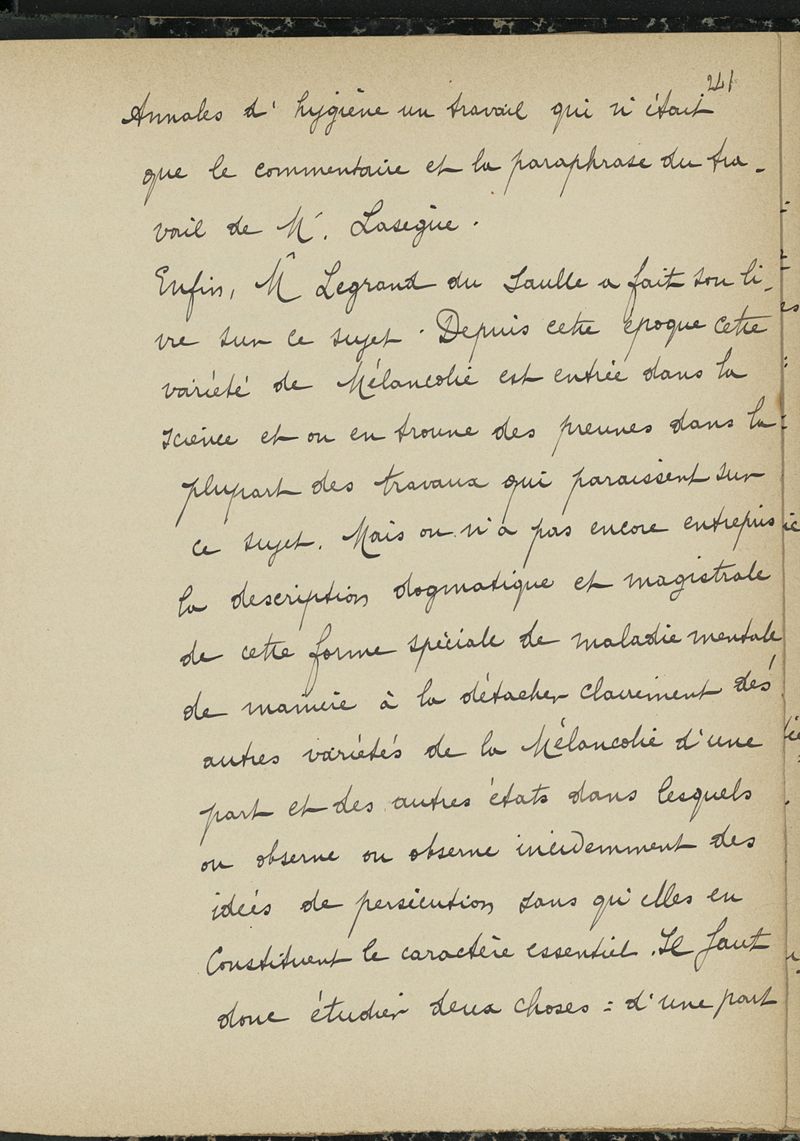 241
Annales d'hygiène un travail qui n'était
que le commentaire et la paraphrase du tra-
vail de M. Lasegue.
Enfin, Mr Legrand du Saulle a fait son li-
vre sur ce sujet. Depuis cette époque cette
variété de Mélancolie est entrée dans la
science et on en trouve des preuves dans la
plupart des travaux qui paraissent sur
ce sujet. Mais on n'a pas encore entrepris
la description dogmatique et magistrale
de cette forme spéciale de maladie mentale
de manière à la détacher clairement des
autres variétés de la Mélancolie d'une
part et des autres états dans lesquels
on observe on observe incidemment des
idées de persécution sans qu'elles en
Constituent le caractère essentiel. Il faut
donc étudier deux choses : d'une part